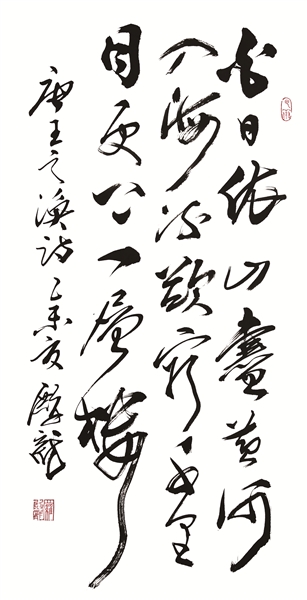 白日依山盡黃河
入海流欲窮千里
目更上一層樓
唐王之渙詩乙未夏